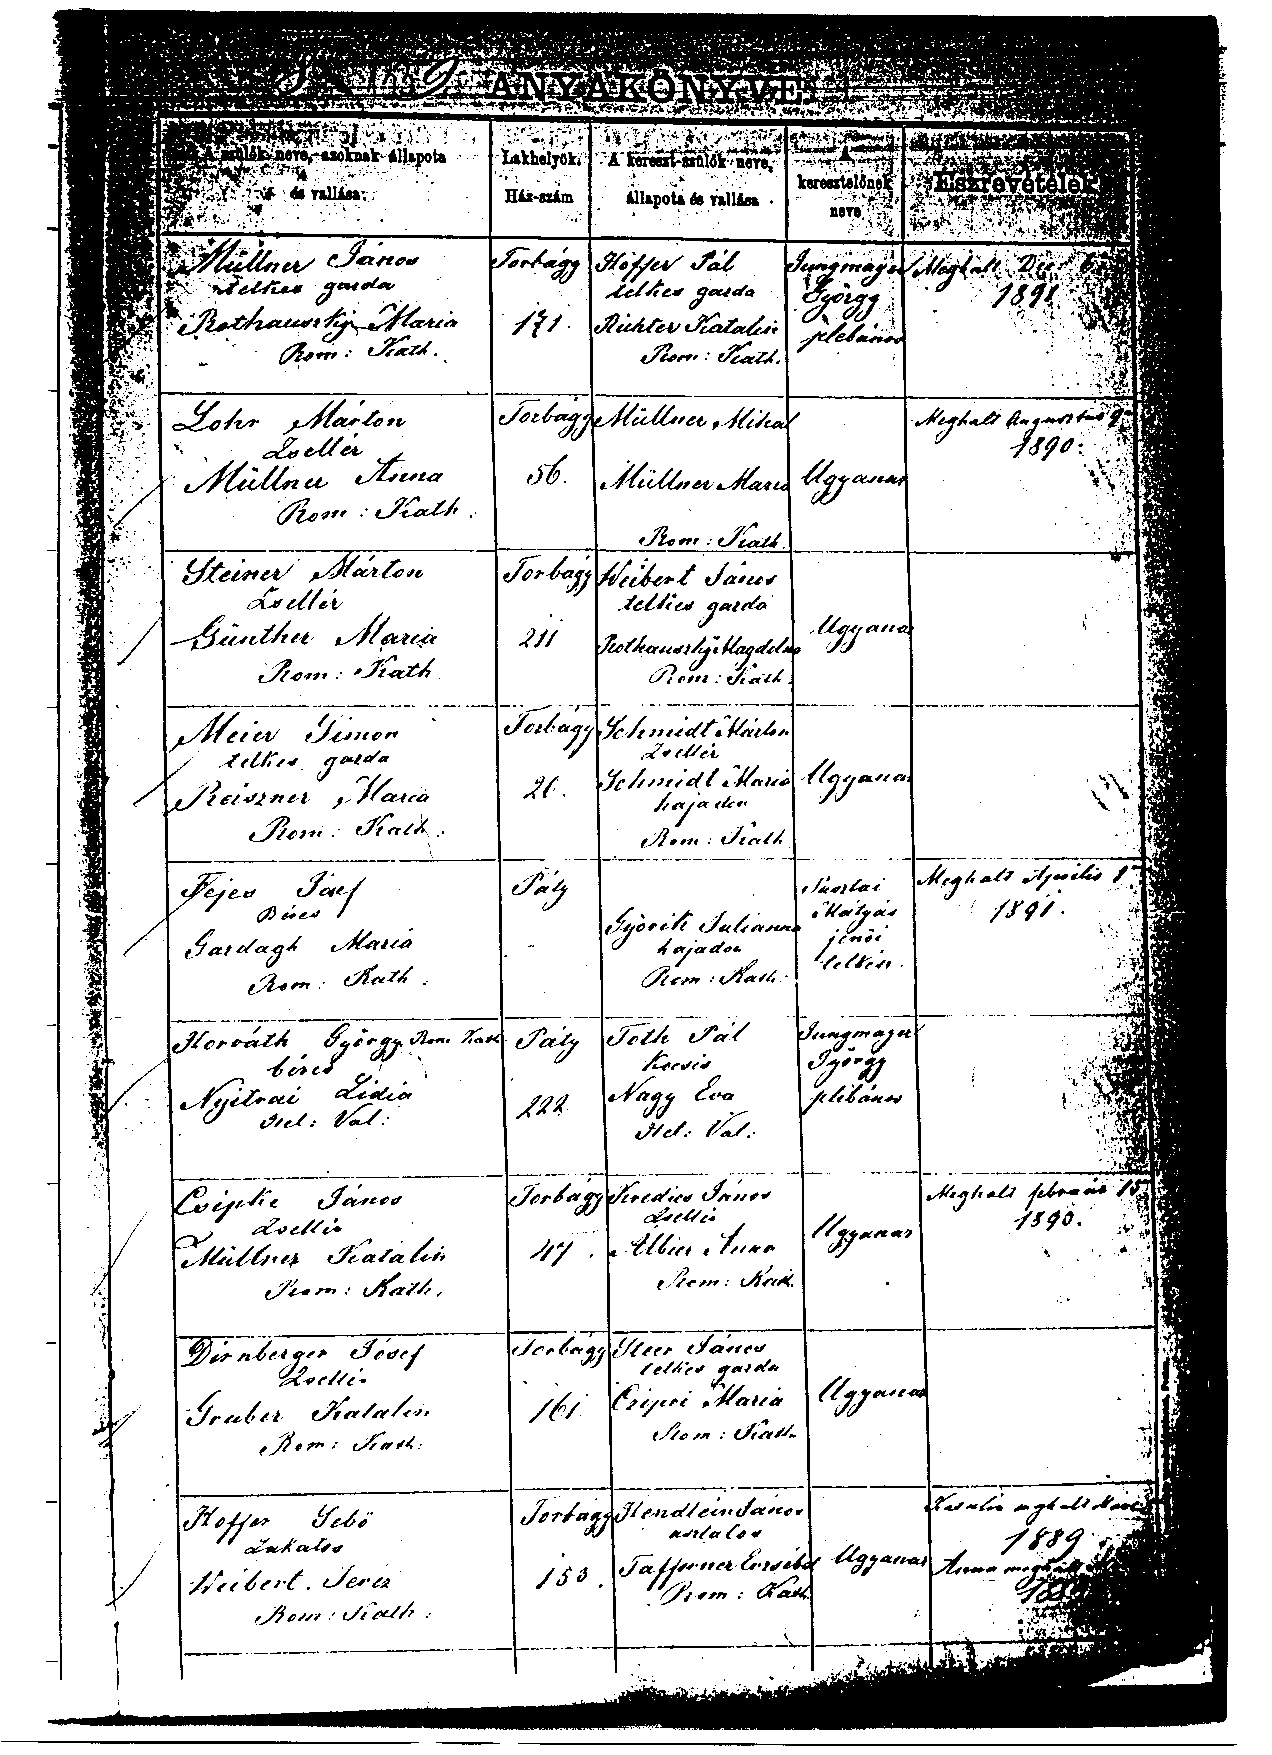 ANYAKÖNYVE.
A szülők neve, azoknak állapota
és vallása.
Lakhelyök.
Ház-szám
A kereszt-szülők neve,
állapota és vallása
A
keresztelőnek
neve
Észrevételek
Müllner János
telkes garda
Rothauszky Maria
Rom: Kath.
Torbágy
171.
Hoffer Pál
telkes garda
Richter Katalin
Rom: Kath.
Jungmayer
György
plebános
Meghalt Dec
1891
Lohr Márton
Zsellér
Müllner Anna
Rom: Kath.
Torbágy
56.
Müllner Mihal
Müllner Maria
Rom: Kath.
Ugyanaz
Meghalt Augusztus 9
1890.
Steiner Márton
Zsellér
Günther Maria
Rom: Kath
Torbágy
211
Weibert János
telkes garda
Rothauszky Magdolna
Rom: Kath.
Ugyanaz
Meier Simon
telkes garda
Reiszner Maria
Rom: Kath.
Torbágy
26.
Schmidt Márton
Zsellér
Schmidt Maria
hajadon
Rom: Kath
Ugyanaz
Fejes Josef
Béres
Gardagh Maria
Rom: Kath.
Páty
Györik Julianna
hajadon
Rom: Kath.
Mátyás
jenöi
lelkész.
Meghalt Aprilis
1891.
Horváth György Rom Kath
béres
Nyitrai Lidia
Hel: Val:
Páty
222
Toth Pál
Kocsis
Nagy Eva
Hel: Val:
Jungmayer
György
plébános
Csipke János
Zsellér
Müllner Katalin
Rom: Kath.
Torbágy
47.
János
Zsellér
Albier Anna
Rom: Kath.
Ugyanaz
Meghalt február 15
1890.
Dirnberger József
Zsellér
Gruber Katalin
Rom: Kath:
Torbágy
161
Steer János
telkes garda
Maria
Rom: Kath.
Ugyanaz
Hoffer Sebö
Lakatos
Weibert Terez
Rom: Kath:
Torbagy
153.
Hendlein János
asztalos
Tafferner Erzsébet
Rom: Kath.
Ugyanaz
Katalin meghalt
1889
Anna meghalt